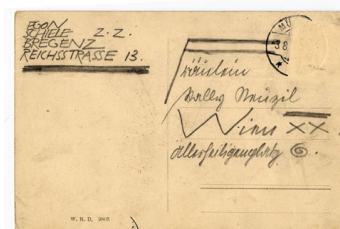 EGON
SCHIELE Z.Z.
BREGENZ
REICHSSTRASSE 13.
MÜ
Fräulein
Wally Neuzil
Wien XX
Allerheiligenplatz 6.
W. R. D.